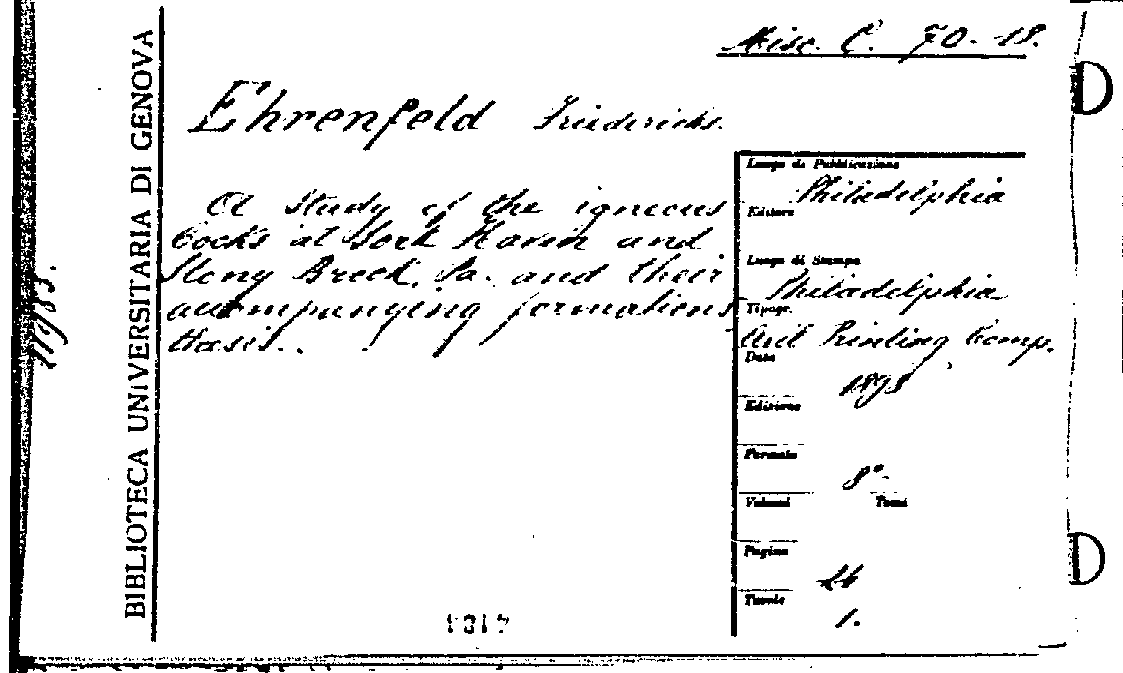 Misc. C. 70-18.
BIBLIOTECA UNIVERSITARIA DI GENOVA
Ehrenfeld Friederichs.
A study of the igneous
Rocks at York Haven and
Stony Breck, Pa. and their
accompanying formations
thesis.
Luogo di Pubblicazione
Philadelphia
Editore
Luogo di Stampa
Philadelphia
Tipogr.
Printing Comp.
Data
1898
Edizione
Formato
8°
Volumi Tomi
Pagine
26
Tavole
1.